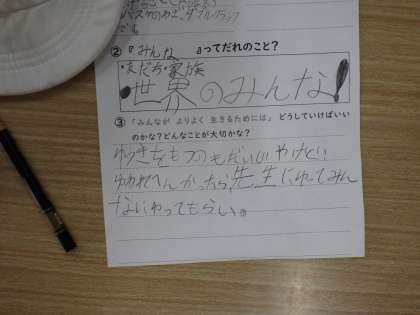 バスケのカエ、ダブルクラッチ
です。
②『みんな』ってだれのこと？
・友だち・家族
・世界のみんな！
③「みんなが よりよく 生きるためには」どうしていけばいい
のかな？どんなことが大切かな？
ゆうきをもつのもだいじ やけど、
ゆわれへんかったら、先生にゆってみん
なにゆってもらい、。